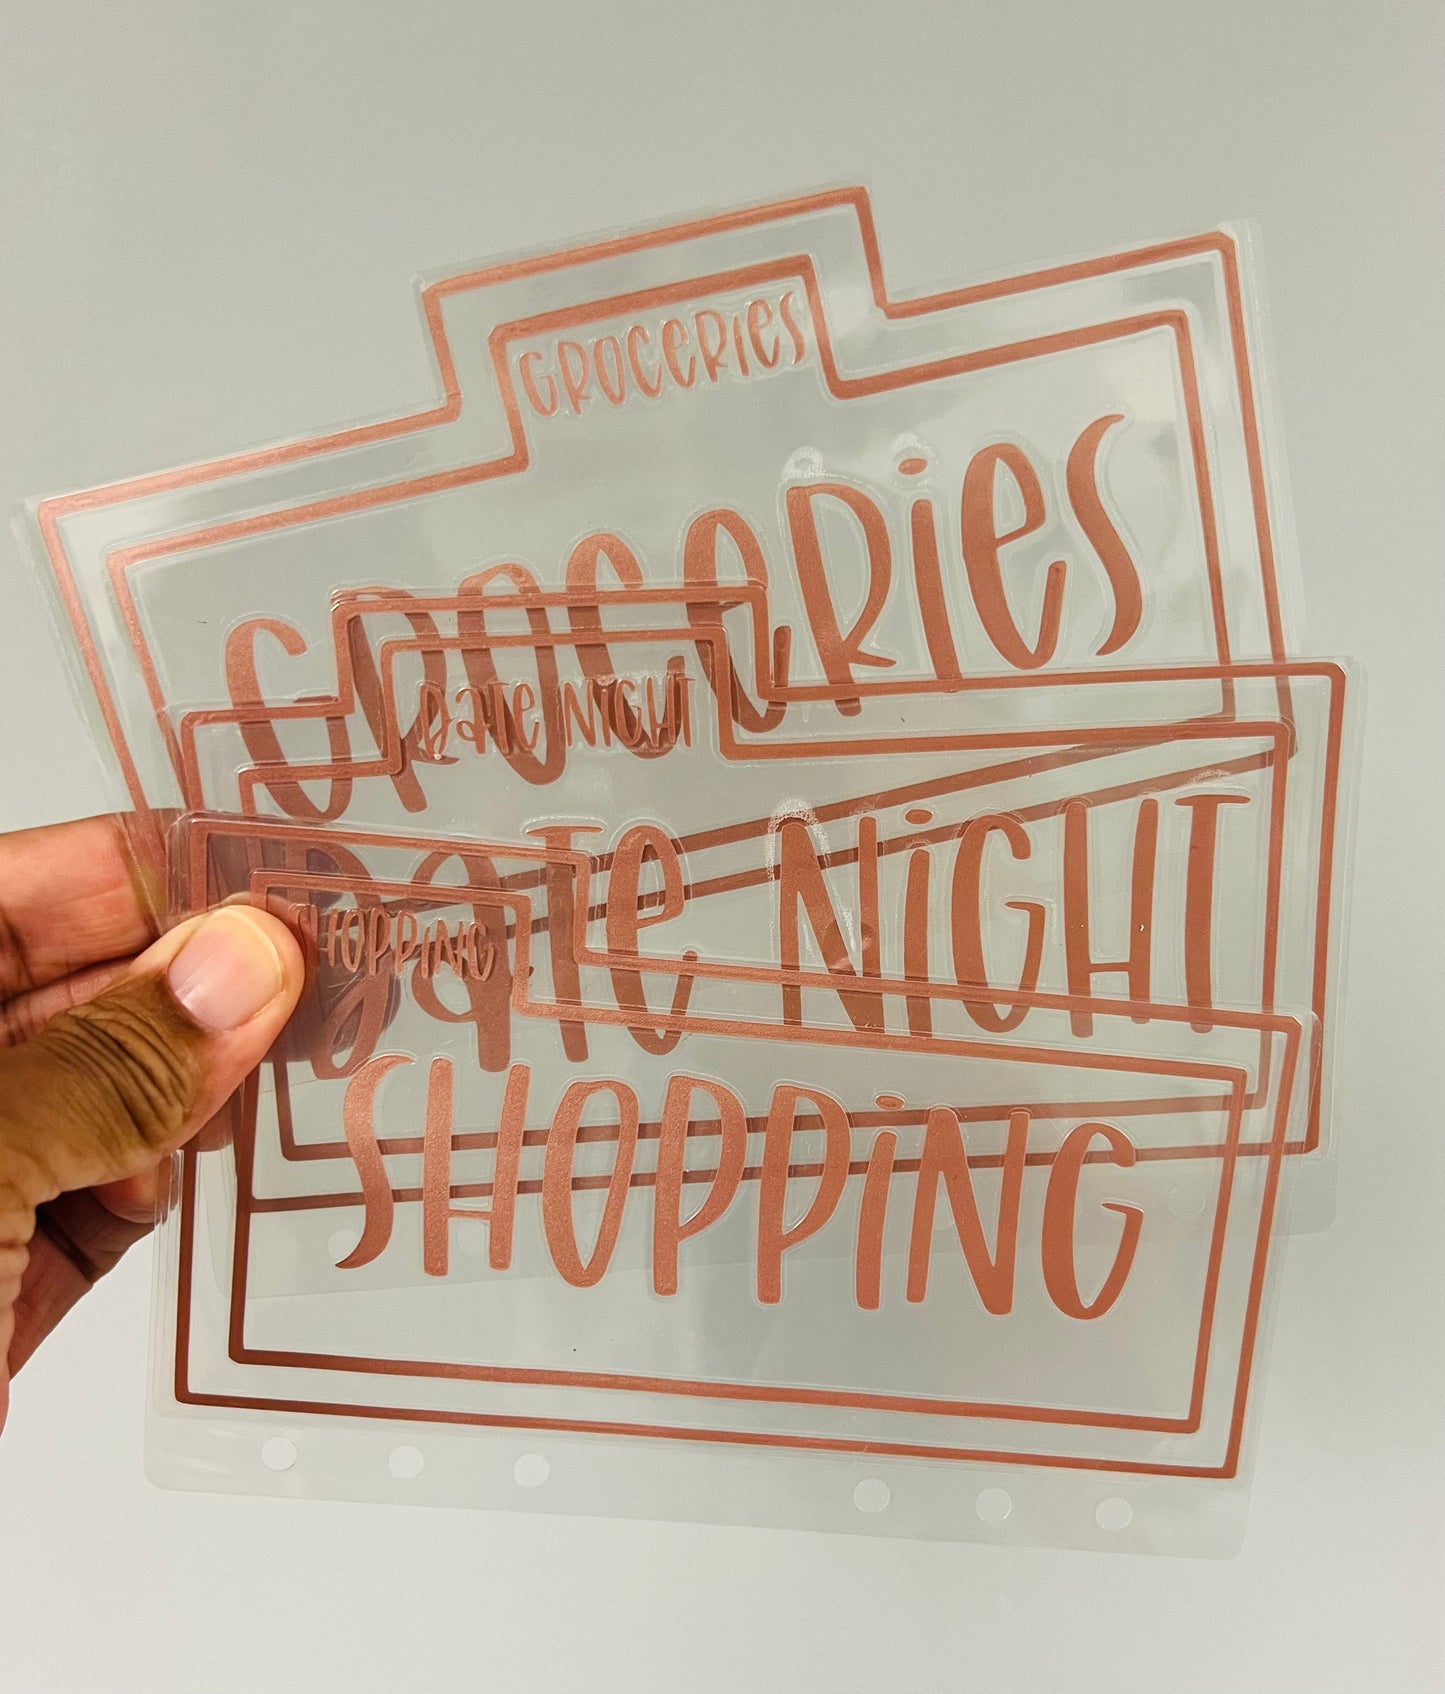 GROCERIES
GROCERIES
Date NiGHT
Date NiGHT
SHOPPING
SHOPPiNG